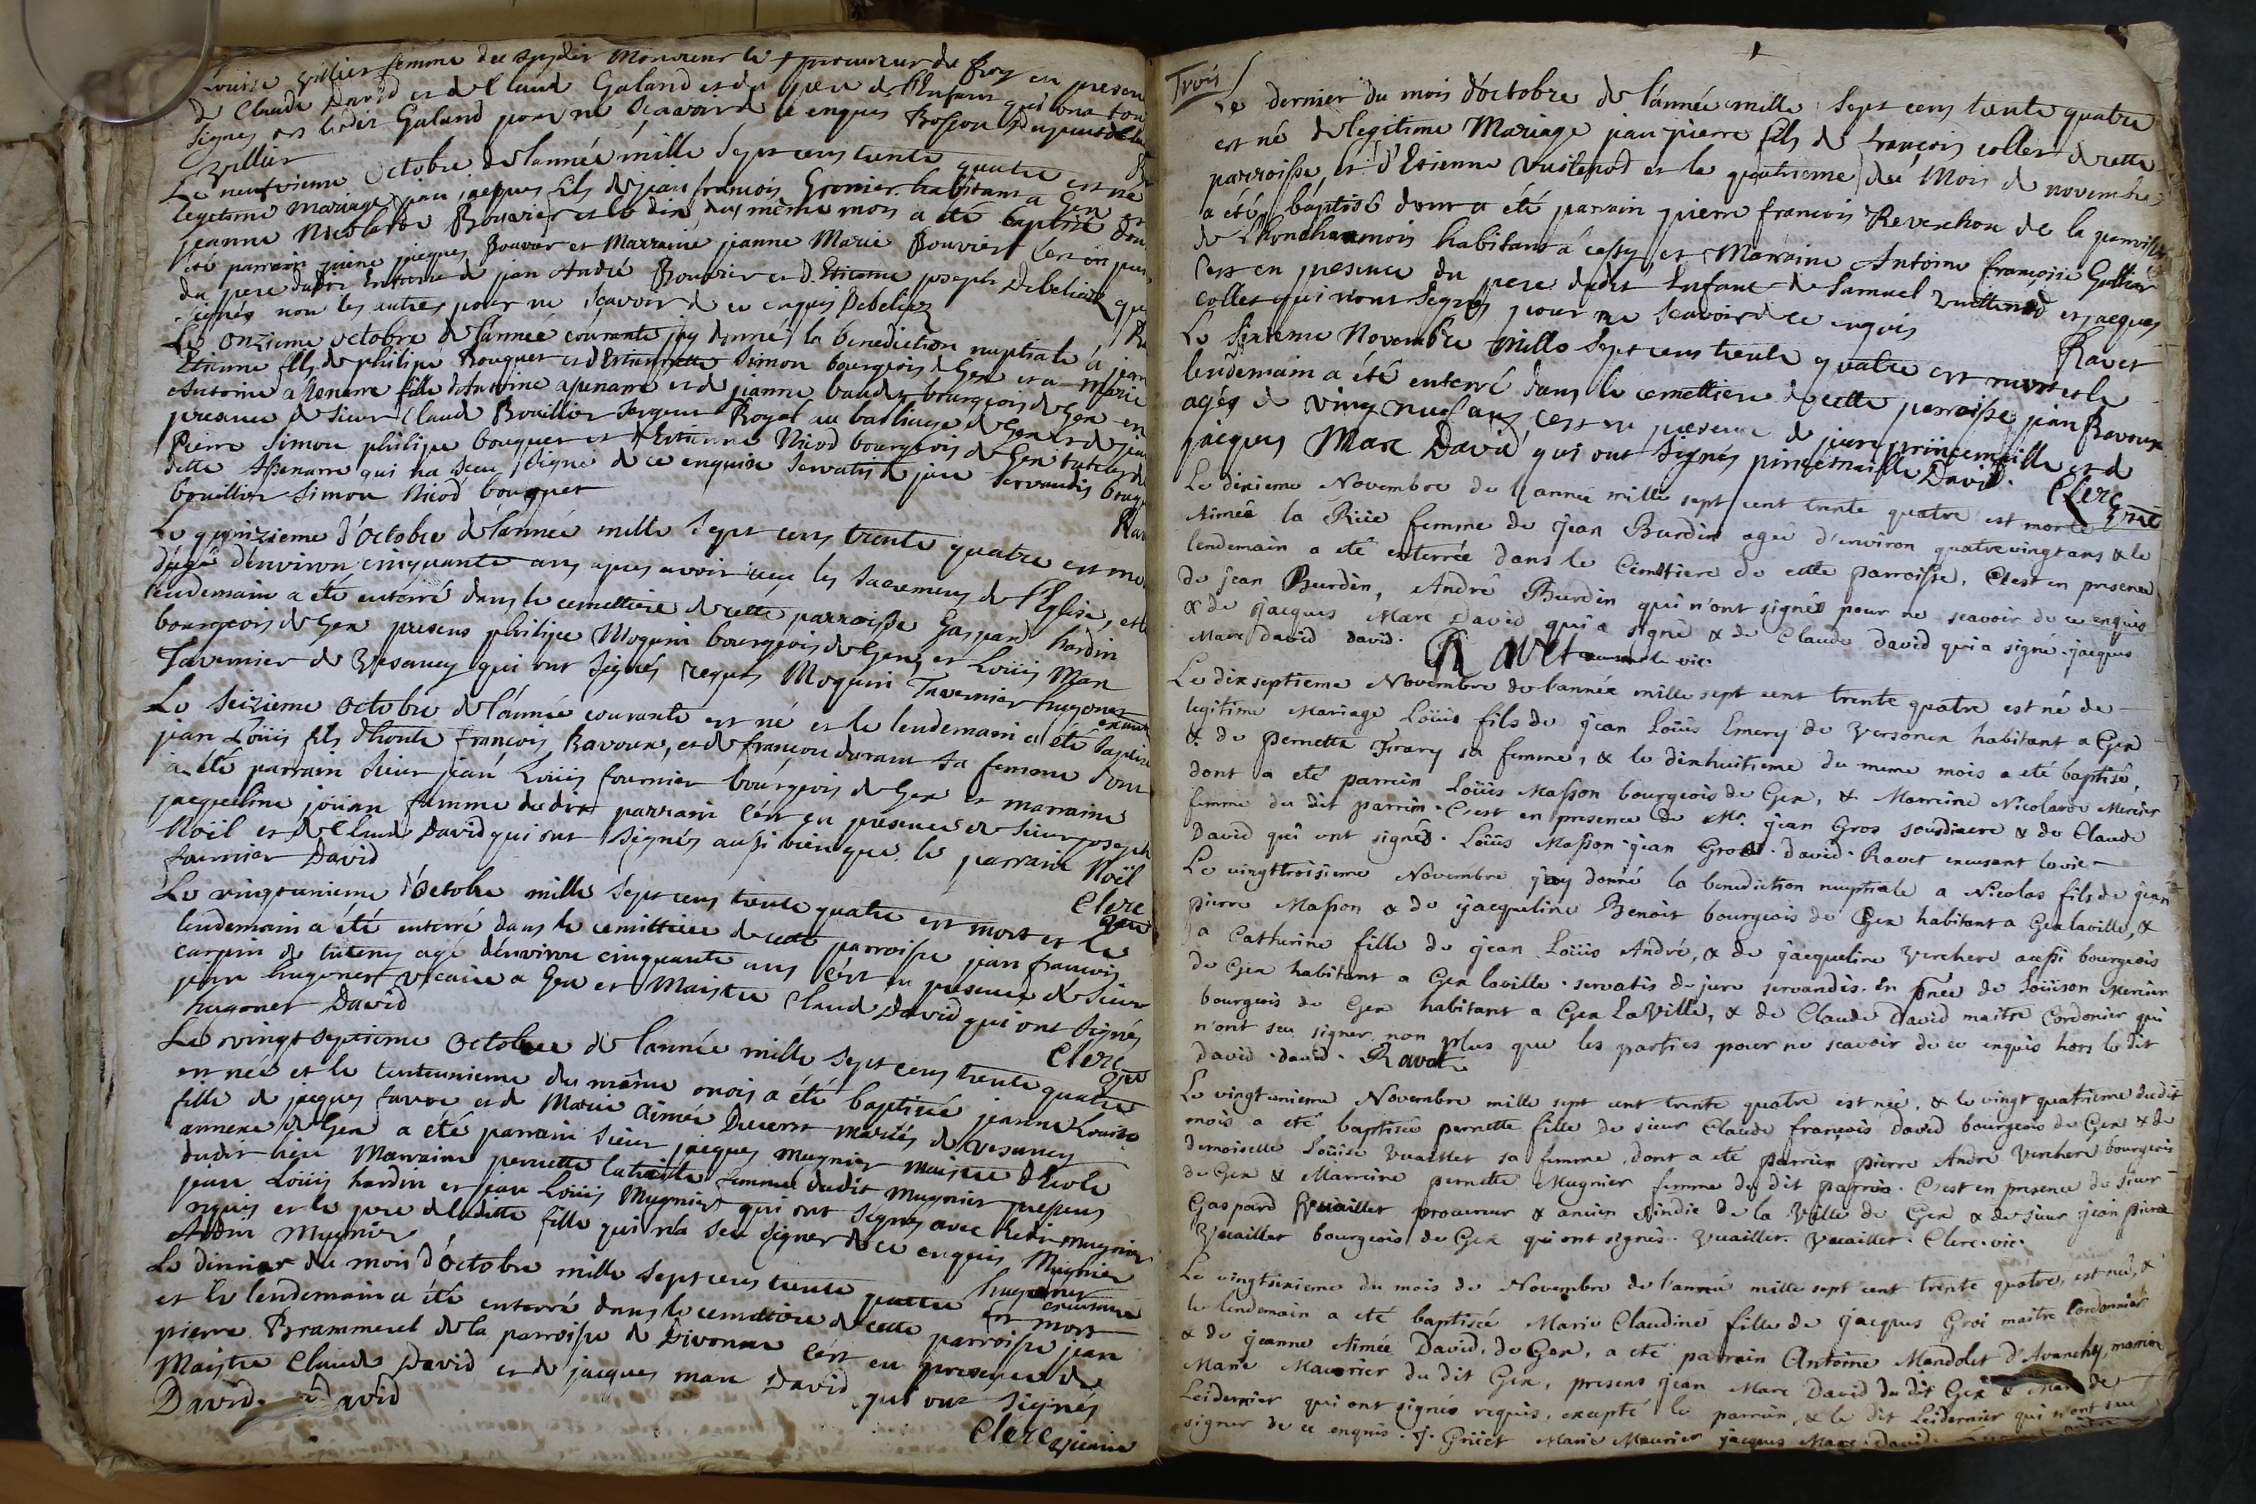 Louise Villier femme du susdit Monsieur le procureur du Roy en presence
de Claude David et de Claude Galand et du pere de l'Enfant qui ont tous
signés le dit Galand pour ne sçavoir de ce enquis
Villier
Le neufvieme Octobre de l'année mille sept cens trente quatre est né
legitime Mariage jean jacques fils de jean françois Gronier habitant a Gex et
jeanne Nicolarde Bouvier et le dix du même mois a été baptisé dont
été parrain jacques Bouvier et Marraine jeanne Marie Bouvier c'est en
du pere dudit Enfant de jean André Bouvier et d'Etienne joseph Debeliaz qui
signés non les autres pour ne sçavoir de ce enquis Debeliaz
Le onzieme octobre de l'année courante jay donné la benediction nuptiale à jean
Etienne fils de philipe Bouquet et d'Estiennette Simon bourgeois de Gex et a Marie
Antoine fille d'Antoine et de jeanne baudet bourgeois de Gex en
presence de sieur Claude Bouillier sergent Royal au bailliage de Gex et de jean
Pierre Simon philipe bouquet et d'Estienne Nicod bourgeois de Gex tuteur de
dette qui ha sceu signé de ce enquise servatis de jure servandis bouquet
bouillier Simon Nicod bouquet
Le quinzieme d'Octobre de l'année mille sept cens trente quatre est mort
d'environ cinquante ans apres avoir receu les sacremens de l'Eglise, et le
lendemain a été enterré dans le cemettiere de cette parroisse Gaspard hardin
bourgeois de Gex presens philipe Moquin bourgeois de Gex et Loüis Marc
Tavernier de Vesancy qui ont signés requis Moquin Tavernier hugonet
Le seizieme Octobre de l'année courante est né et le lendemain a été baptisé
jean Loüis fils d'honte françois Ravoux, et de françoise durant sa femme dont
a été parrain sieur jean Loüis fournier bourgeois de Gex et marraine
jacqueline joüan femme du dit parrain c'est en presence de sieur joseph
Noël et de Claude David qui ont signés aussi bien que le parrain Noël
fournier David
Clerc
Le vingtunieme d'Octobre mille sept cens trente quatre est mort et le
lendemain a été enterré dans le cemettiere de cette parroisse jean françois
carpin de tuteny agé d'environ cinquante ans c'est en presence de sieur
jean hugonet vicaire a Gex et Maistre Claude David qui ont signés
hugonet David
Clerc
Le vingt septieme Octobre de l'année mille sept cens trente quatre
est née et le trentunieme du même mois a été baptisée jeanne Louise
fille de jacques favre et de Marie Aimée Ducerst mariés de vesancy
annexe de Gex a été parrain sieur jacques mugnier maistre d'Ecole
dudit lieu Marraine pernette femme dudit mugnier presens
jean Loüis hardin et jean Loüis Mugnier qui ont signés avec ledit mugnier
requis et le pere de ladite fille qui n'a sçu signer de ce enquis Mugnier
Ardin Mugnier
hugonet
Le dernier du mois d'Octobre mille sept cens trente quatre est mort
et le lendemain a été enterré dans le cemetiere de cette parroisse jean
pierre Brammerel de la parroisse de Divonne c'est en presence de
Maistre Claude David et de jacques marc David qui ont signés
David. David
Clerc vicaire
Trois
Le dernier du mois d'octobre de l'année mille sept cens trente quatre
est né de legitime Mariage jean pierre fils de françois collet de cette
parroisse et d'Etienne Vuillenod et le quatrieme du Mois de novembre
a été baptisé dont a été parrain pierre francois Reverchon de la parroisse
de habitant à cessy et Marraine Antoine françoise Gottier
c'est en presence du pere dudit Enfant de Samuel Vuillenod et jacques
collet qui n'ont signés pour ne sçavoir de ce enquis
Ravet
Le sixieme Novembre mille sept cens trente quatre est mort et le
lendemain a été enterré dans le cemettiere de cette parroisse jean Ravoux
agés de vingt neuf ans c'est en presence de jean princemaille et de
jacques Marc David qui ont signés princemaille David.
Clerc
Le dixieme Novembre de l'année mille sept cent trente quatre est morte
Aimée la Rüe femme de jean Burdin agée d'environ quatrevingt ans & le
lendemain a eté enterrée dans le Cimetiere de cette parroisse, C'est en presence
de jean Burdin, André Burdin qui n'ont signés pour ne scavoir de ce enquis
& de jacques Marc David qui a signé & de Claude David qui a signé. jacques
Marc David David. Ravet vic.
Le dixseptieme Novembre de l'année mille sept cent trente quatre est né de
legitime Mariage Loüis fils de jean Loüis Emery de Versonex habitant a Gex
& de pernette Firary sa femme, & le dixhuitieme du meme mois a eté baptisé,
dont a eté parrein Loüis Masson bourgeois de Gex, & Marreine Nicolarde Mercier
femme du dit parrein. C'est en presence de Mr. jean Gros sousdiacre & de Claude
David qui ont signés. Loüis Masson. jean Gros. David. Ravet vic
Le vingttroisieme Novembre j'ay donné la benediction nuptiale a Nicolas fils de jean
pierre Masson & de jacqueline Benoit bourgeois de Gex habitant a Gexlaville, &
a Catherine fille de jean Loüis André, & de jacqueline Verchere aussi bourgeois
de Gex habitant a Gex laville. servatis de jure servandis. En pnce de Loüison Mercier
bourgeois de Gex habitant a Gex LaVille, & de Claude David maitre Cordonier qui
n'ont seu signer non plus que les parties pour ne scavoir de ce enquis hors le dit
David. David. Ravet
Le vingt unieme Novembre mille sept cent trente quatre est née, & le vingt quatrieme dudit
mois a eté baptisée pernette fille de sieur Claude françois David bourgeois de Gex & de
demoiselle Loüise Vuaillet sa femme, dont a eté parrein pierre André Verchere bourgeois
de Gex & Marreine pernette Mugnier femme du dit parrein. C'est en presence de sieur
Gaspard Vuaillet procureur & ancien sindic de la Ville de Gex & de sieur jean pierre
Vuaillet bourgeois de Gex qui ont signés. Vuaillet. Vuaillet. Clerc. vic.
Le vingtsixieme du mois de Novembre de l'année mille sept cent trente quatre, est née, &
le lendemain a eté baptisée Marie Claudine fille de jacques Groi maitre Cordonnier
& de jeanne Aimée David, de Gex, a eté parrein Antoine Mandolet d'Avanchy, marreine
Marie Maurier du dit Gex, presens jean Marc David du dit Gex & de
Leidernier qui ont signés requis, excepté le parrein, & le dit Leidernier qui n'ont seu
signer de ce enquis. J. Griiet Marie Maurier jacques Marc. David.